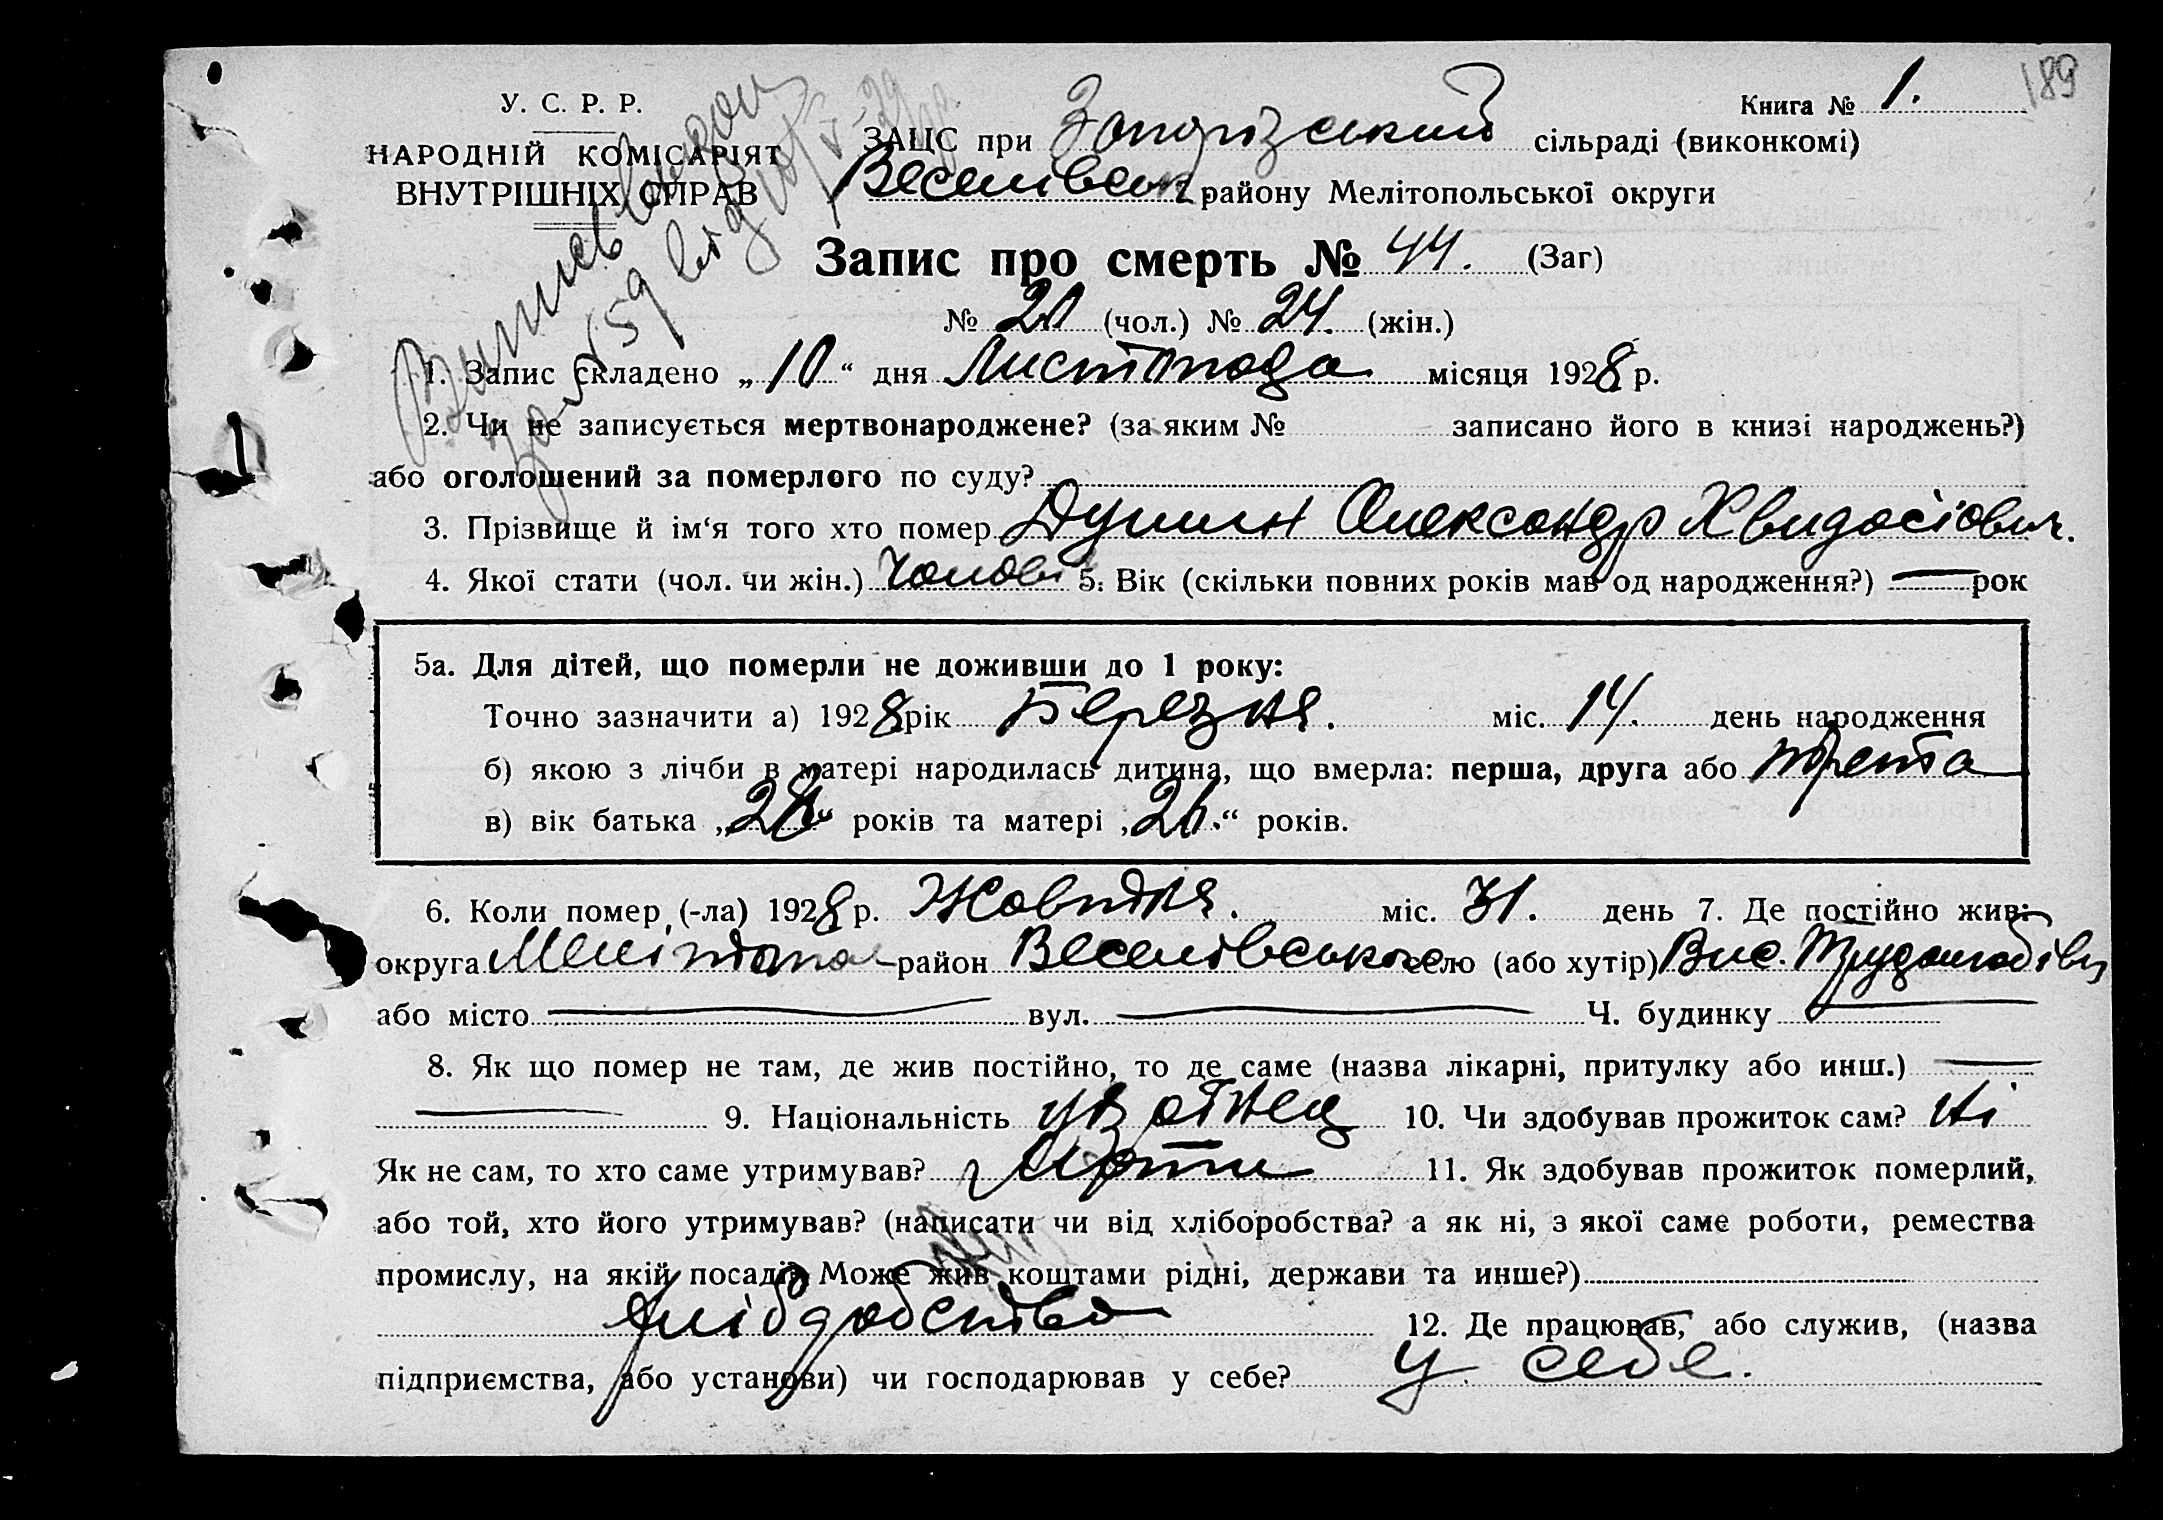 189
У. С. Р. Р.
Книга № 1.
НАРОДНІЙ КОМІСАРІЯТ
ВНУТРІШНІХ СПРАВ
ЗАЦС при Запорізський сільраді (виконкомі)
Веселівськ району Мелітопольської округи
Запис про смерть № 44. (Заг)
№ 20 (чол.) № 24. (жін.)
1. Запис складено „10“ дня Листопада місяця 1928 р.
2. Чи не записується мертвонароджене? (за яким № записано його в книзі народжень?)
або оголошений за померлого по суду?
3. Прізвище й ім‘я того хто помер Душин Олександр Хвидосіович.
4. Якої стати (чол. чи жін.) Чолові 5. Вік (скільки повних років мав од народження?) — рок
5а. Для дітей, що померли не доживши до 1 року:
Точно зазначити а) 1928 рік Березня. міс. 14. день народження
б) якою з лічби в матері народилась дитина, що вмерла: перша, друга або трета
в) вік батька „ “ років та матері „ “ років.
6. Коли помер (-ла) 1928 р. Жовтня. міс. 31. день 7. Де постійно жив:
округа Мелітопол район Веселівсько селю (або хутір) Вис. Трудолюбівц
або місто — вул. — Ч. будинку —
8. Як що помер не там, де жив постійно, то де саме (назва лікарні, притулку або инш.) —
— 9. Національність 10. Чи здобував прожиток сам? Ні
Як не сам, то хто саме утримував? 11. Як здобував прожиток померлий,
або той, хто його утримував? (написати чи від хліборобства? а як ні, з якої саме роботи, ремества
промислу, на якій посаді? Може жив коштами рідні, держави та инше?)
хлібдобство 12. Де працював, або служив, (назва
підприємства, або установи) чи господарював у себе? У себе.